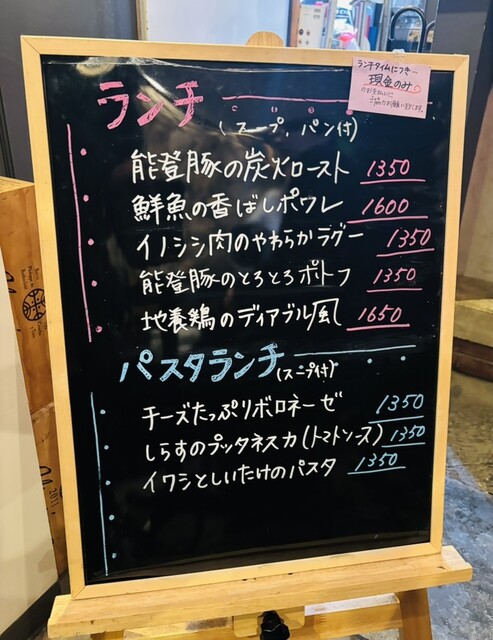 ランチタイムにつき
現金のみ
のお支払いに
ご協力お願い致します。
ランチ
(スープ、パン付)
能登豚の炭火ロースト 1350
鮮魚の香ばしポワレ 1600
イノシシ肉のやわらかラグー 1350
能登豚のとろとろポトフ 1350
地養鶏のディアブル風 1650
パスタランチ(スープ付)
チーズたっぷりボロネーゼ 1350
しらすのプッタネスカ(トマトソース) 1350
イワシとしいたけのパスタ 1350